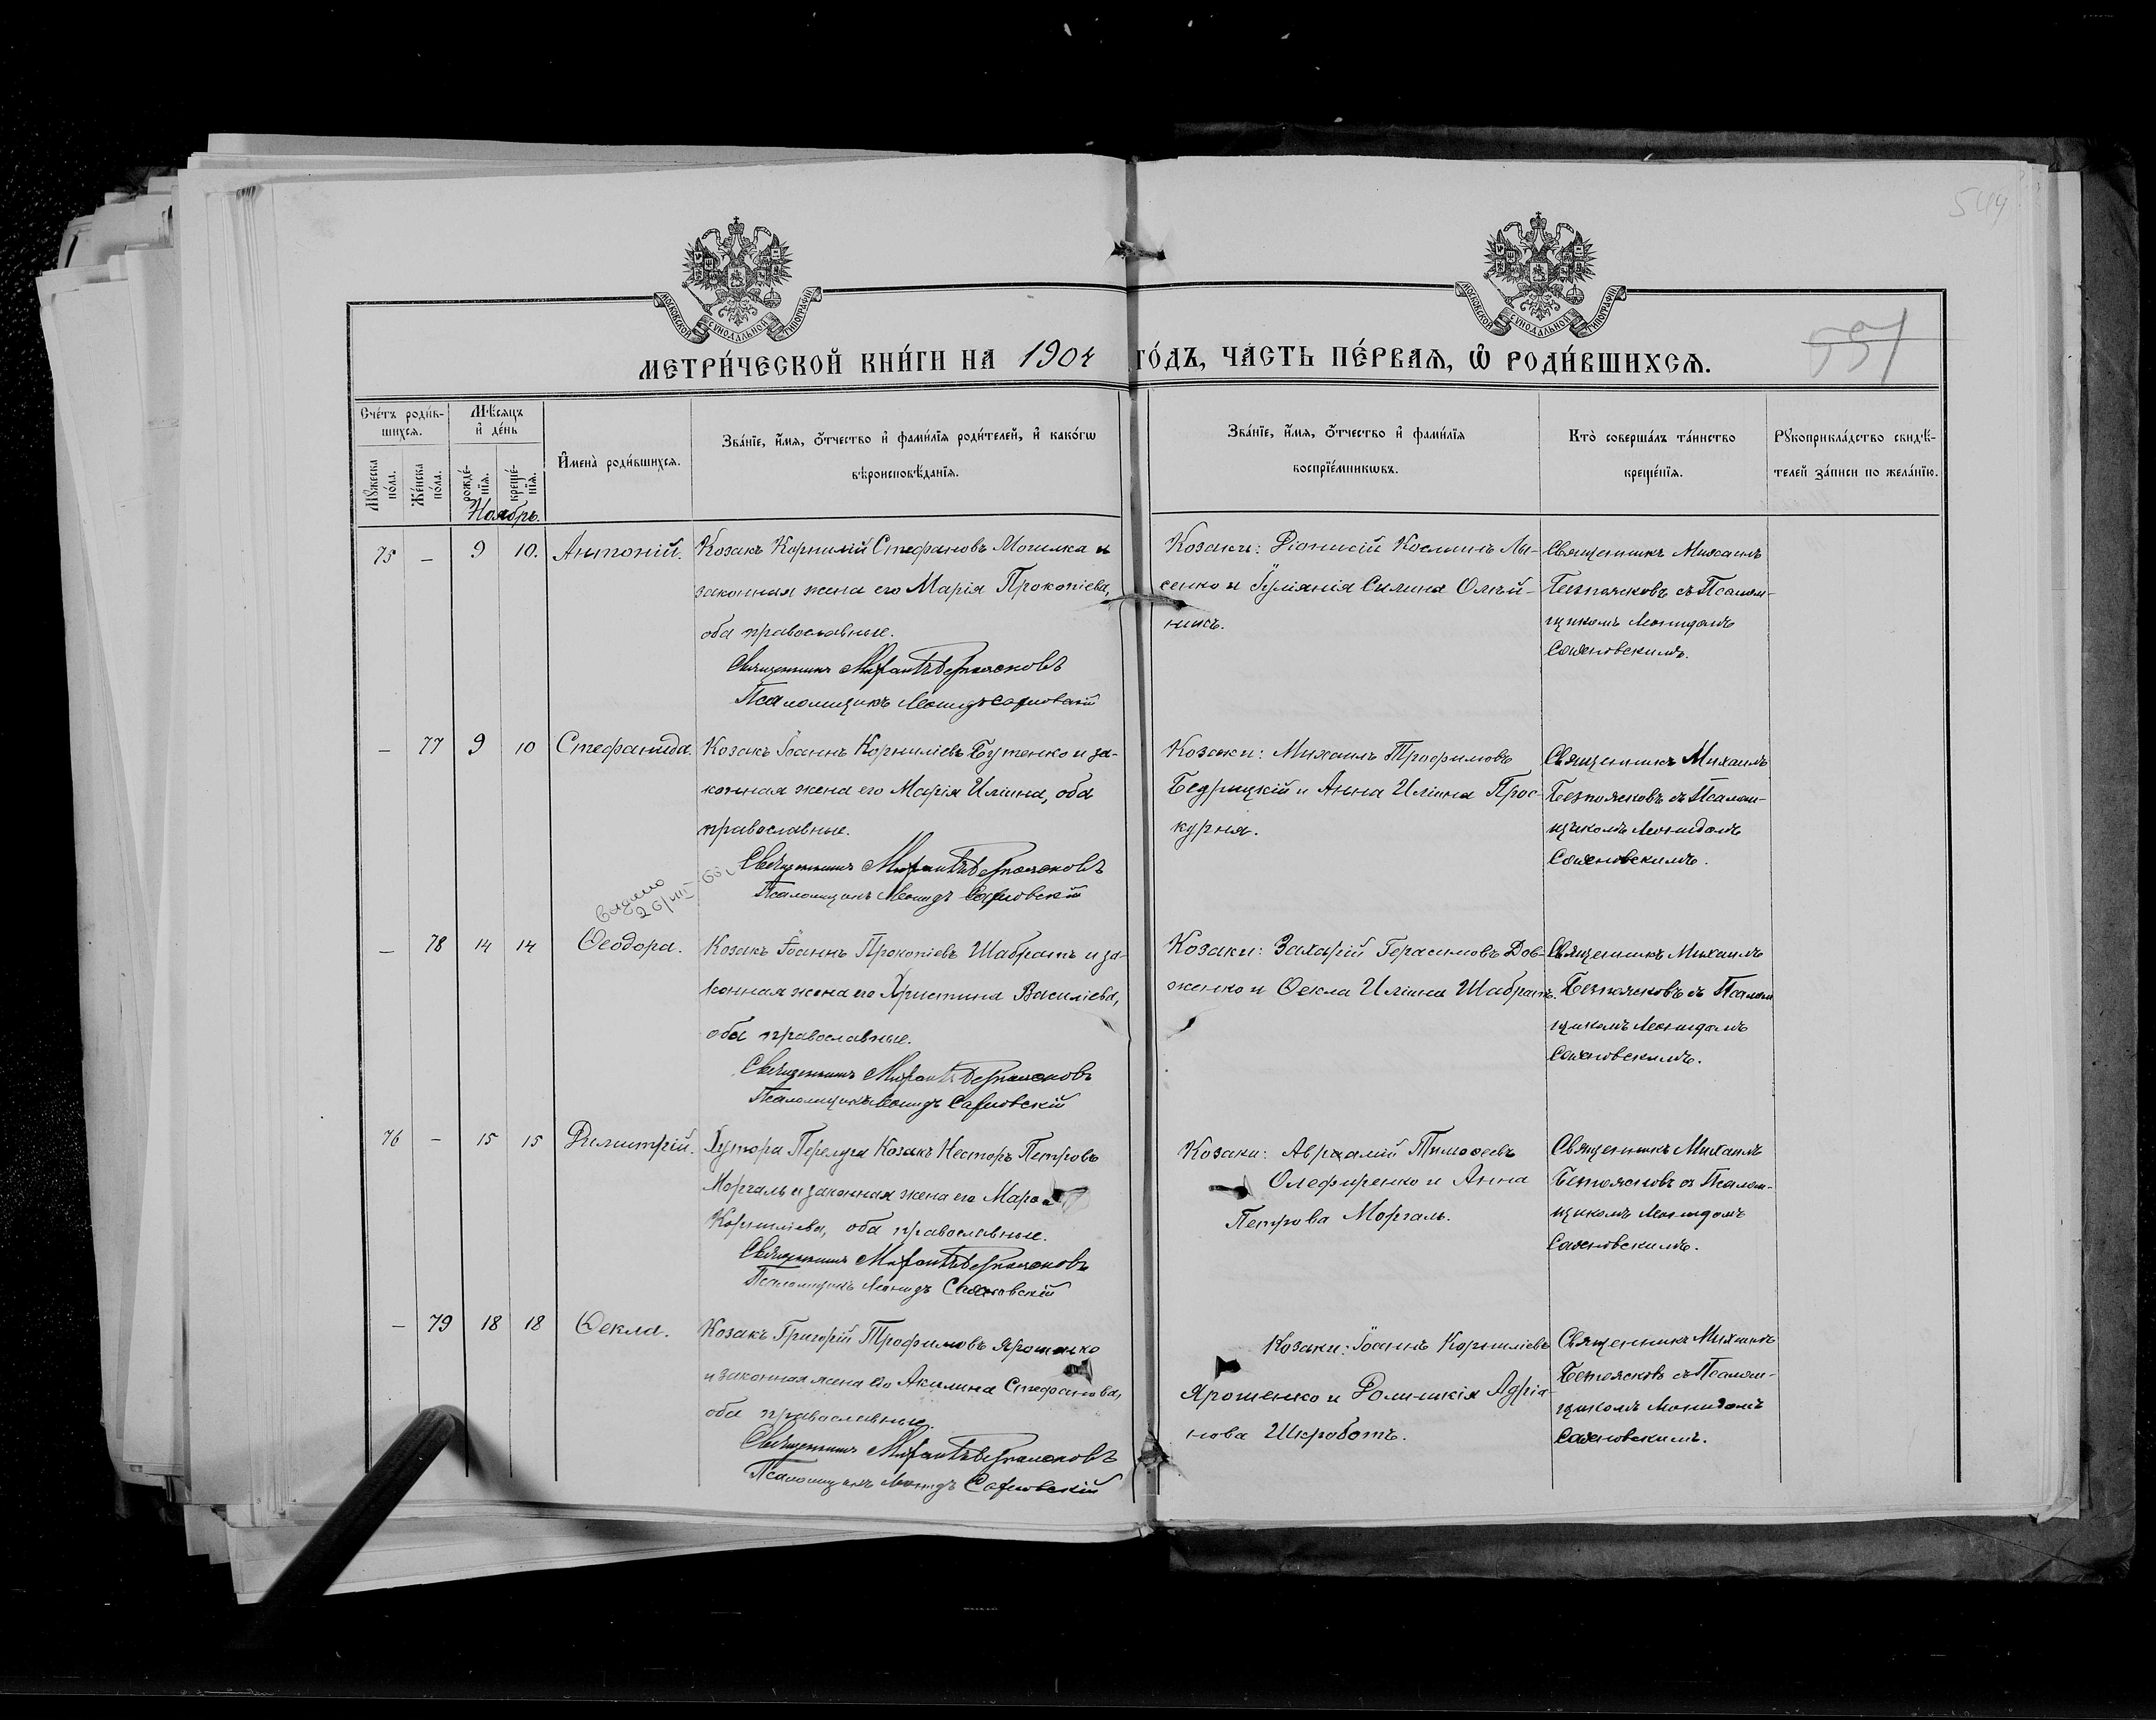 544
МОСКОВСКОЙ СУНОДАЛЬНОЙ ТИПОГРАФІИ
МОСКОВСКОЙ СУНОДАЛЬНОЙ ТИПОГРАФІИ
МЕТРИ́ЧЕСКОЙ КНИ́ГИ НА 1904 ГО́ДЪ, ЧА́СТЬ ПЕ́РВАѦ, Ѡ РОДИ́ВШИХСѦ.
551
Сче́тъ роди́в-
шихсѧ.
Мѣ́сѧцъ
и҆ де́нь
Мꙋ́жеска по́ла.
Же́нска по́ла.
рожде́-нїѧ.
креще́-нїѧ.
И҆мена̀ роди́вшихсѧ.
Зва́нїе, и҆́мѧ, ѻ҆́тчество и҆ фами́лїѧ роди́телей, и҆ како́гѡ
вѣроисповѣ́данїѧ.
Зва́нїе, и҆́мѧ, ѻ҆́тчество и҆ фами́лїѧ
воспрїе́мникѡвъ.
Кто̀ соверша́лъ та́инство
креще́нїѧ.
Рꙋкоприкла́дство свидѣ́-
телей за́писи по жела́нїю.
Ноябрь.
75 — 9 10. Антоній.
Козакъ Корнилій Стефановъ Могилка и
законная жена его Марія Прокопіева,
оба православные.
Священникъ Михаилъ Безпоясковъ
Псаломщикъ Леонидъ Сажновскій
Козаки: Діонисій Косминъ Лы-
сенко и Іуліанія Силина Олѣй-
никъ.
Священникъ Михаилъ
Безпоясковъ съ Псалом-
щикомъ Леонидомъ
Саженовскимъ.
— 77 9 10 Стефанида.
Козакъ Іоаннъ Корниліевъ Бутенко и за-
конная жена его Марія Иліина, оба
православные.
Священникъ Михаилъ Безпоясковъ
Псаломщикъ Леонидъ Сажновскій
Козаки: Михаилъ Трофимовъ
Бедрицкій и Анна Иліина Прос-
курня.
Священникъ Михаилъ
Безпоясковъ съ Псалом-
щикомъ Леонидомъ
Саженовскимъ.
26/VIII
— 78 14 14 Ѳеодора.
Козакъ Іоаннъ Прокопіевъ Шабратъ и за-
конная жена его Христина Василіева,
оба православные.
Священникъ Михаилъ Безпоясковъ
Псаломщикъ Леонидъ Сажновскій
Козаки: Захарій Герасимовъ Дов-
женко и Ѳекла Иліина Шабратъ.
Священникъ Михаилъ
Безпоясковъ съ Псалом
щикомъ Леонидомъ
Саженовскимъ.
76 — 15 15 Димитрій.
Хутора Перелуга Козакъ Несторъ Петровъ
Моргаль и законная жена его
Корниліева, оба православные.
Священникъ Михаилъ Безпоясковъ
Псаломщикъ Леонидъ Сажновскій
Козаки: Аврамій Тимоѳеевъ
Олефиренко и Анна
Петрова Моргаль.
Священникъ Михаилъ
Безпоясковъ съ Псалом-
щикомъ Леонидомъ
Саженовскимъ.
— 79 18 18 Ѳекла.
Козакъ Григорій Трофимовъ Ярошенко
и законная жена его Акилина Стефанова,
оба православные.
Священникъ Михаилъ Безпоясковъ
Псаломщикъ Леонидъ Сажновскій
Козаки: Іоаннъ Корниліевъ
Ярошенко и Домникія Адріа-
нова Шкроботъ.
Священникъ Михаилъ
Безпоясковъ съ Псалом-
щикомъ Леонидомъ
Саженовскимъ.